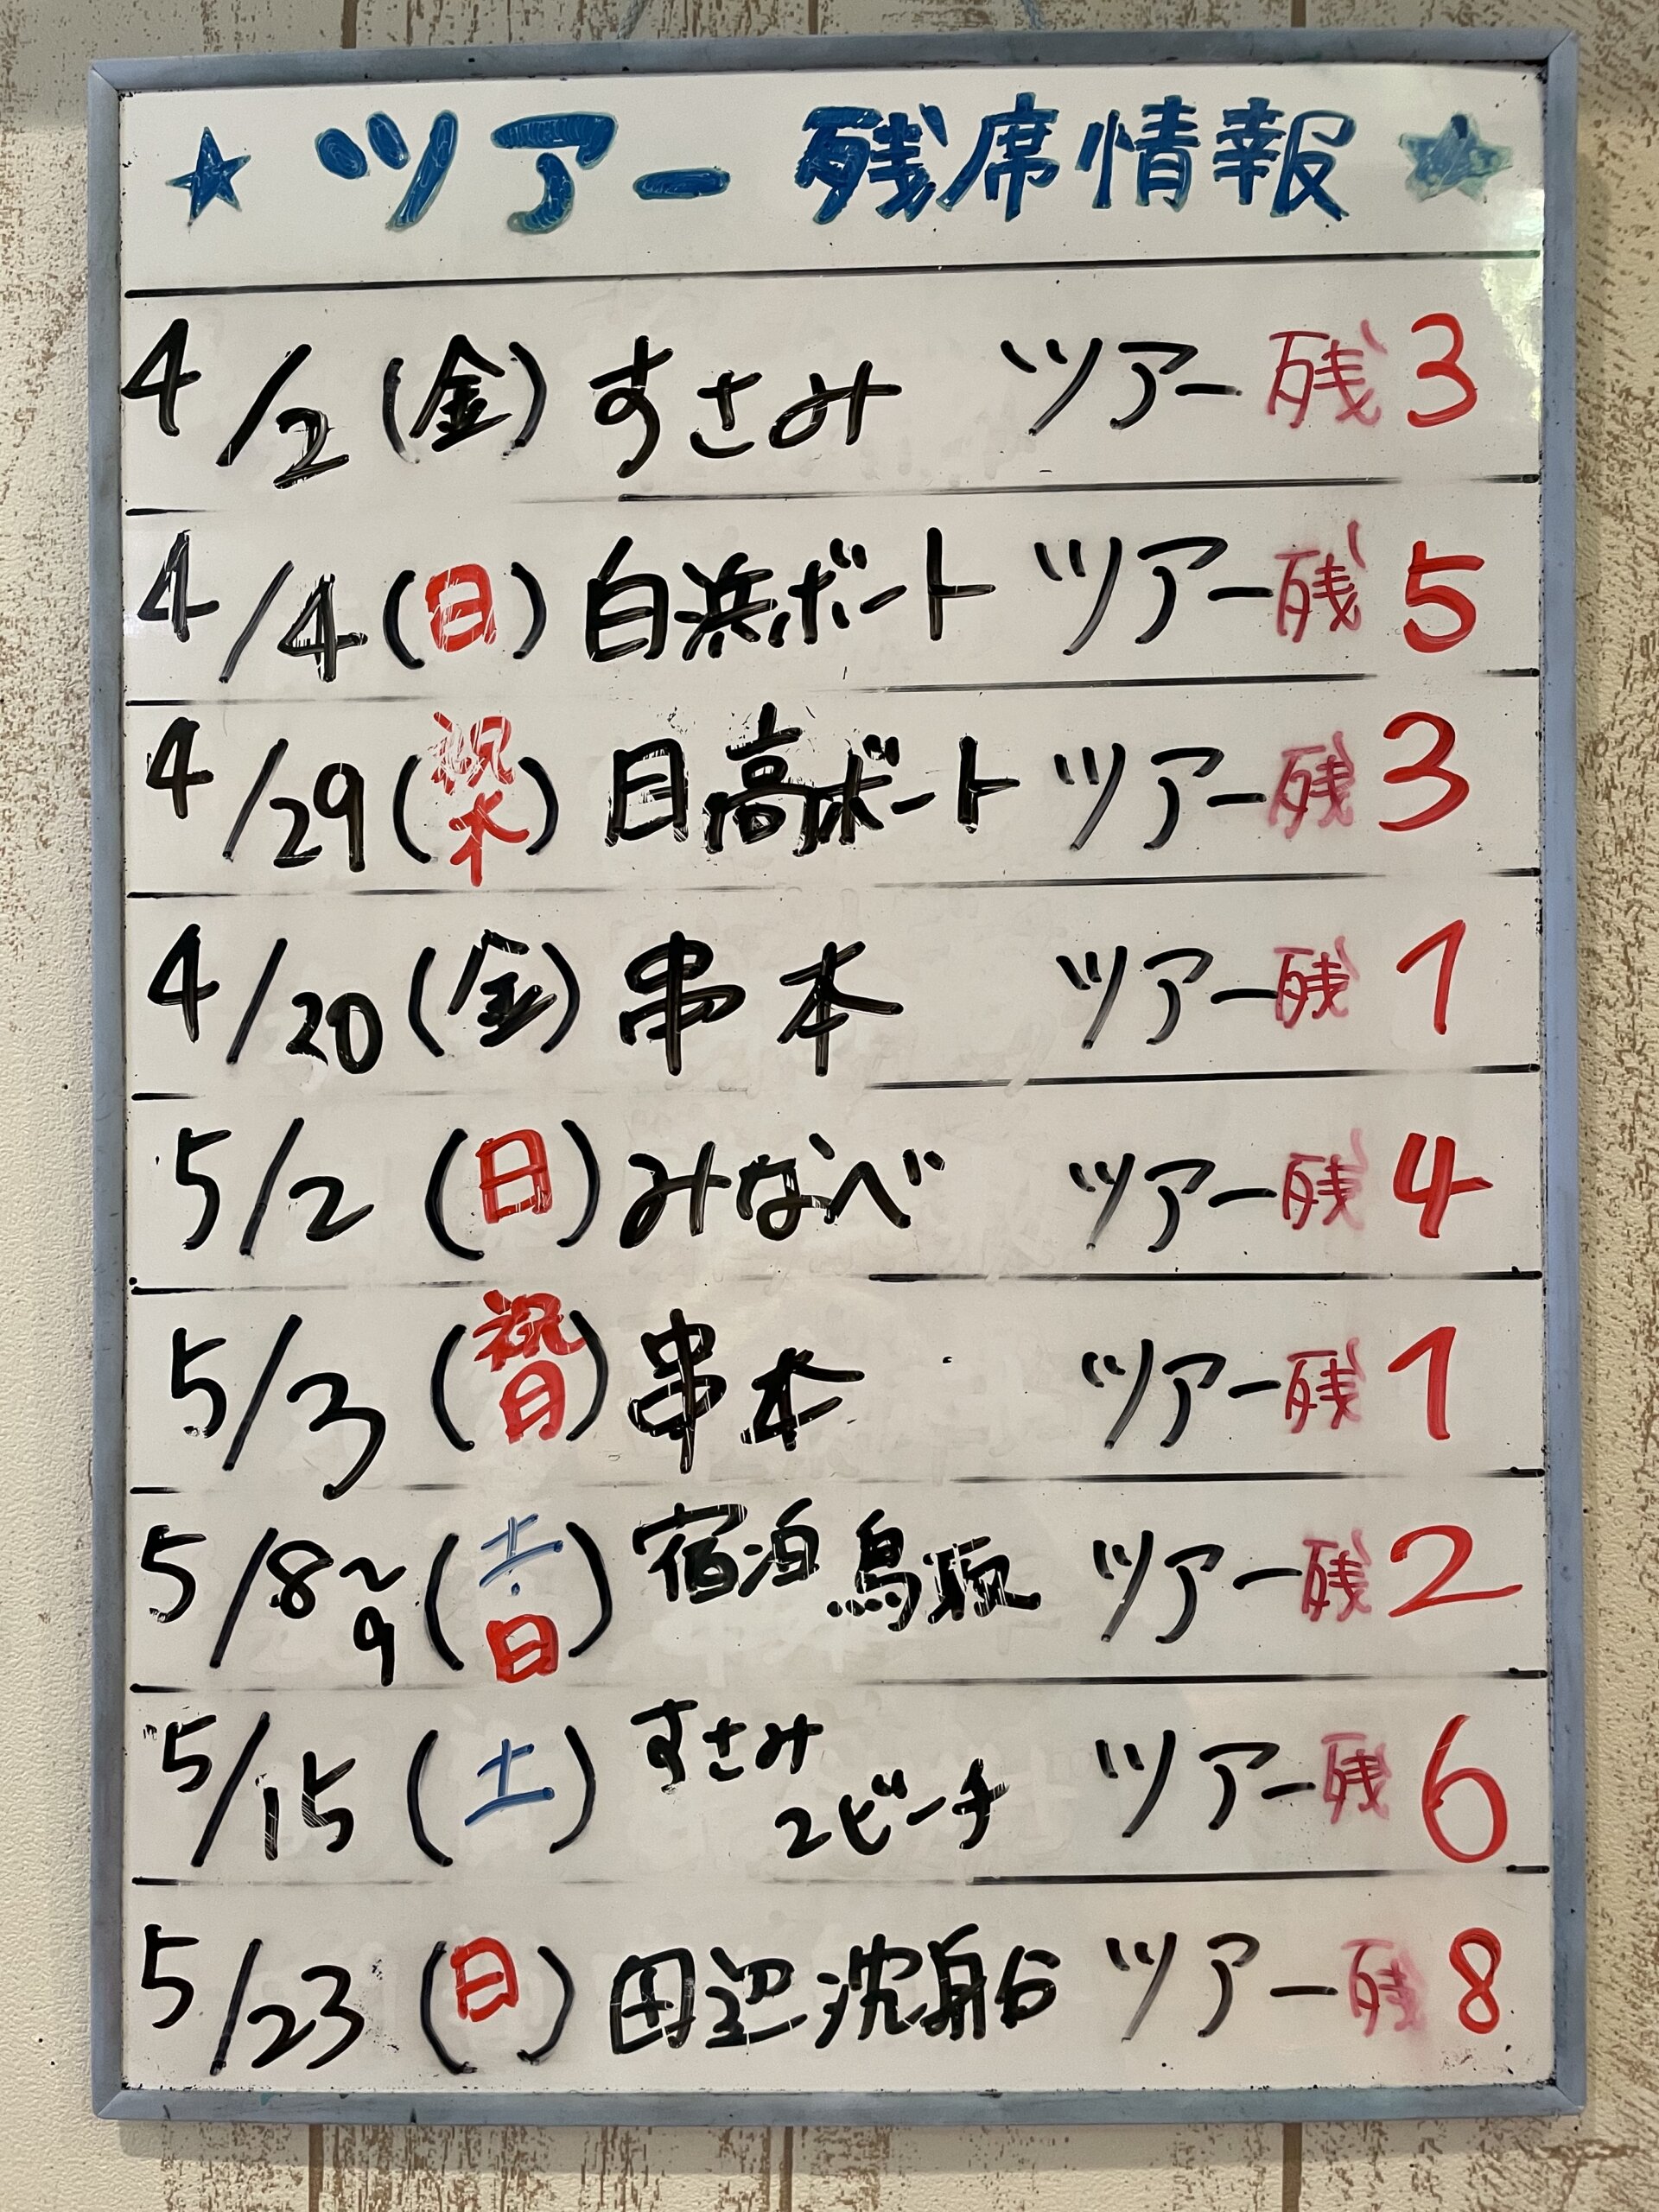 ★ツアー 残席情報★
4/2(金) すさみ ツアー 残3
4/4(日) 白浜ボート ツアー残5
4/29(祝木)日高ボート ツアー残3
4/20(金) 串本 ツアー残1
5/2(日) みなべ ツアー残4
5/3(祝月) 串本 ツアー残1
5/8~9(土・日) 宿泊鳥取 ツアー残2
5/15(土) すさみ2ビーチ ツアー残6
5/23(日) 田辺沈船 ツアー残8